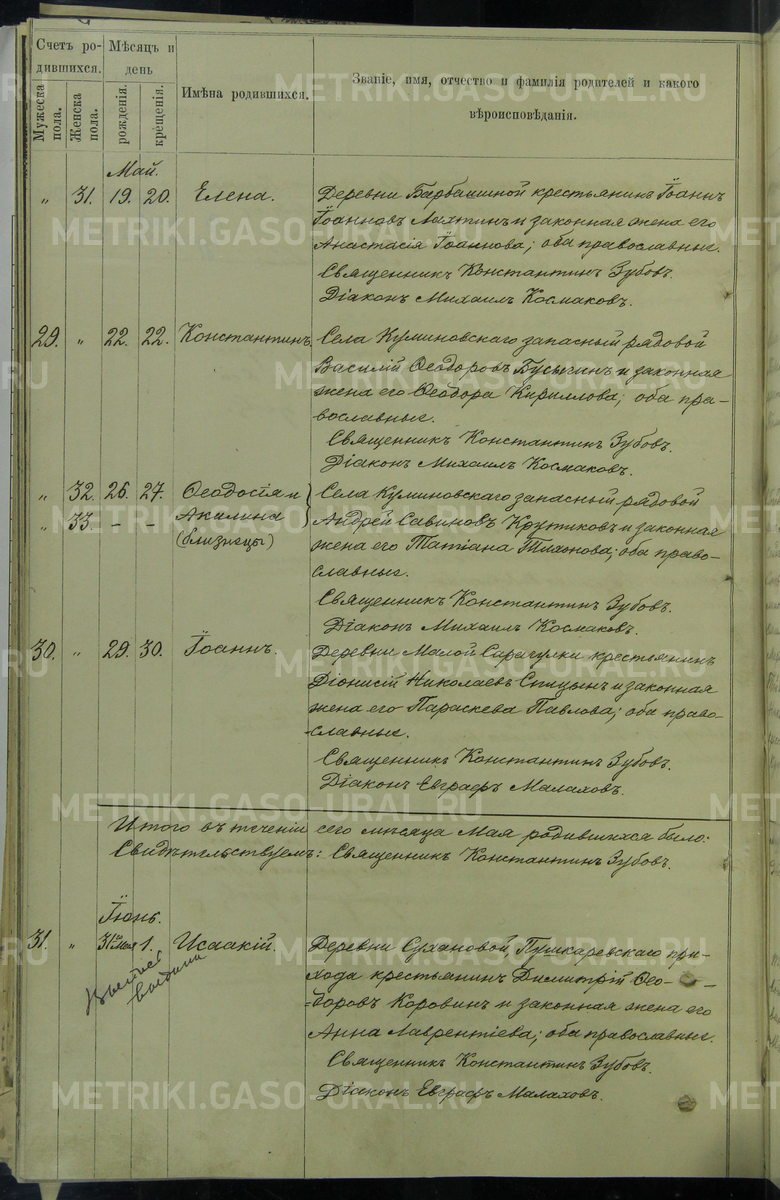 Счетъ ро-
дившихся.
Мѣсяцъ и
день
Имѣна родившихся.
Званіе, имя, отчество и фамилія родителей и какого
вѣроисповѣданія.
Мужеска
пола.
Женска
пола.
рожденія.
крещенія.
METRIKI.GASO-URAL.RU
Май.
„ 31. 19. 20. Елена. Деревни Барбашиной крестьянинъ Іоаннъ
Іоанновъ Лихтинъ и законная жена его
Анастасія Іоаннова; оба православные.
Священникъ Константинъ Зубовъ.
Діаконъ Михаилъ Космаковъ.
29. „ 22. 22. Константинъ. Села Куминовскаго запасный рядовой
Василій Ѳеодоровъ Бусыгинъ и законная
жена его Ѳеодора Кириллова; оба пра-
вославные.
Священникъ Константинъ Зубовъ.
Діаконъ Михаилъ Космаковъ.
„ 32. 26. 27. Ѳеодосія и Села Куминовскаго запасный рядовой
„ 33. – – Акилина Андрей Савиновъ Крутиковъ и законная
(близнецы) жена его Татіана Тихонова; оба право-
славные.
Священникъ Константинъ Зубовъ.
Діаконъ Михаилъ Космаковъ.
30. „ 29. 30. Іоаннъ. Деревни Малой Сарагулки крестьянинъ
Діонисій Николаевъ Спицынъ и законная
жена его Параскева Павлова; оба право-
славные.
Священникъ Константинъ Зубовъ.
Діаконъ Евграфъ Малаховъ.
Итого въ теченіи сего мѣсяца Мая родившихся было:
Свидѣтельствуемъ: Священникъ Константинъ Зубовъ.
Іюнь.
31. „ 31го Мая 1. Исаакій. Деревни Сухановой, Пушкаревскаго при-
хода крестьянинъ Димитрій Ѳео-
=доровъ Коровинъ и законная жена его
Анна Лаврентіева; оба православные.
Священникъ Константинъ Зубовъ.
Діаконъ Евграфъ Малаховъ.